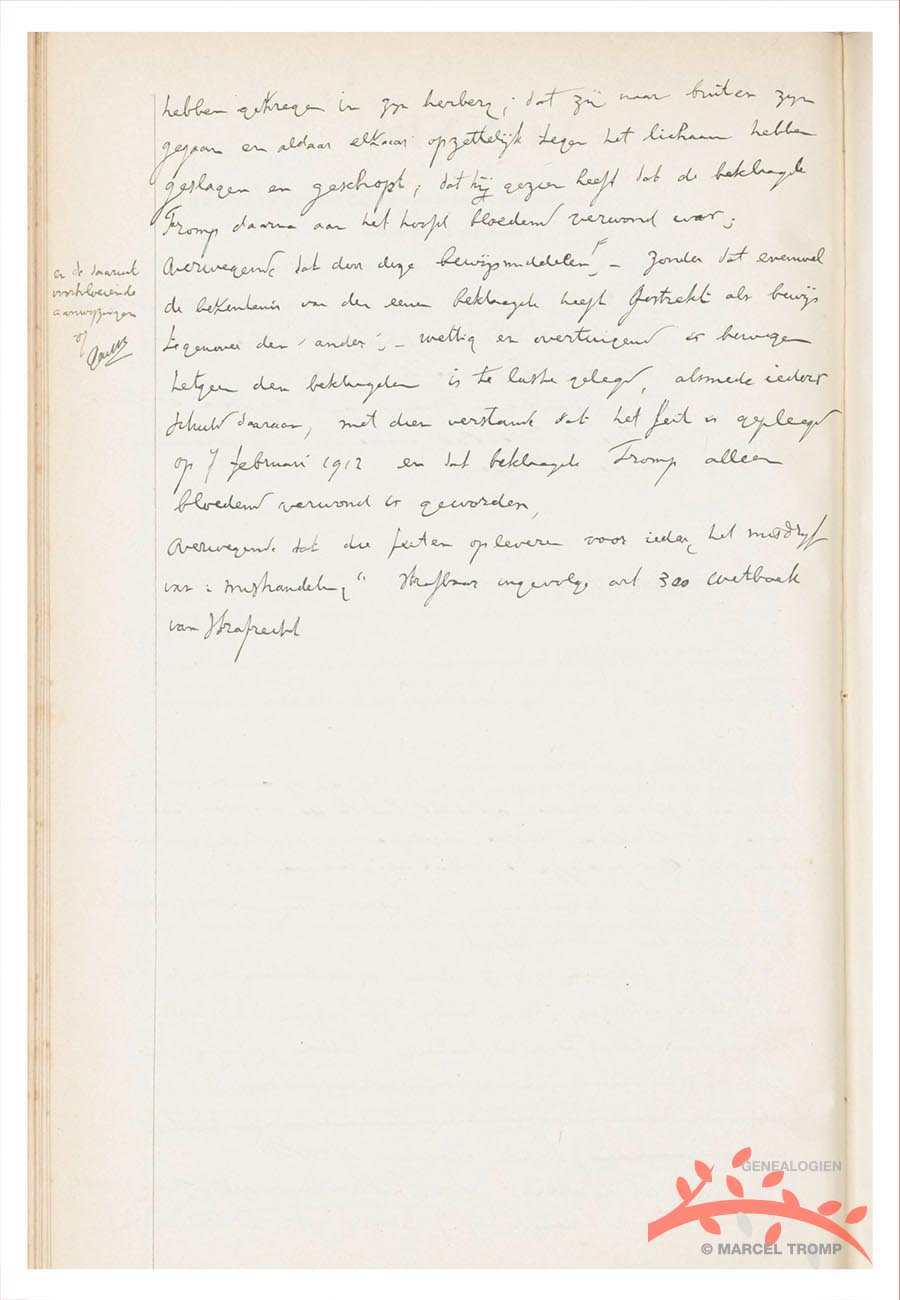 hebben gekregen in zyn herberg; dat zij naar buiten zyn
gegaan en aldaar elkaar opzettelijk tegen het lichaam hebben
geslagen en geschopt; dat hij gezien heeft dat de beklaagde
Tromp daarna aan het hoofd bloedend verwond was;
Overwegende dat door deze bewijsmiddelen – zonder dat evenwel
de bekentenis van den eenen beklaagde heeft gestrekt als bewijs
tegenover den ander; – wettig en overtuigend is bewezen
hetgeen den beklaagden is te laste gelegd, alsmede ieders
schuld daaraan, met dien verstande dat het feit is gepleegd
op 7 februari 1912 en dat beklaagde Tromp alleen
bloedend verwond is geworden,
Overwegende dat die feiten opleveren voor ieder, het misdrijf
van: mishandeling" strafbaar ingevolge art 300 Wetboek
van Strafrecht
en de daaruit
voortvloeiende
aanwyzingen
GENEALOGIEN
© MARCEL TROMP